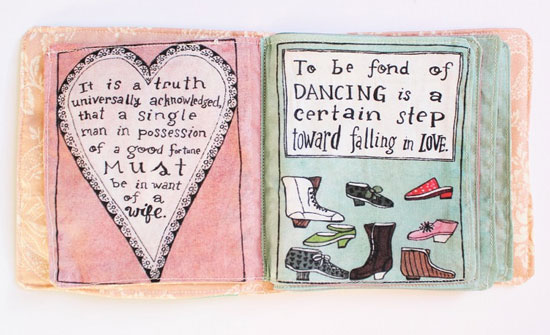 It is a truth
universally acknowledged,
that a single
man in possession
of a good fortune
MUST
be in want
of a
wife.
To be fond of
DANCING is a
certain step
toward falling in LOVE.